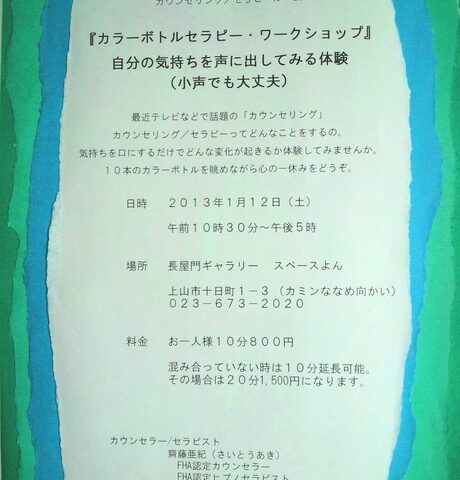 カウンセリング／セラピー ルーム
『カラーボトルセラピー・ワークショップ』
自分の気持ちを声に出してみる体験
（小声でも大丈夫）
最近テレビなどで話題の「カウンセリング」
カウンセリング／セラピーってどんなことをするの。
気持ちを口にするだけでどんな変化が起きるか体験してみませんか。
１０本のカラーボトルを眺めながら心の一休みをどうぞ。
日時　２０１３年１月１２日（土）
午前１０時３０分～午後５時
場所　長屋門ギャラリー　スペースよん
上山市十日町１－３（カミンななめ向かい）
０２３－６７３－２０２０
料金　お一人様１０分８００円
混み合っていない時は１０分延長可能。
その場合は２０分1,500円になります。
カウンセラー/セラピスト
齋藤亜紀（さいとうあき）
FHA認定カウンセラー
FHA認定ヒプノセラピスト